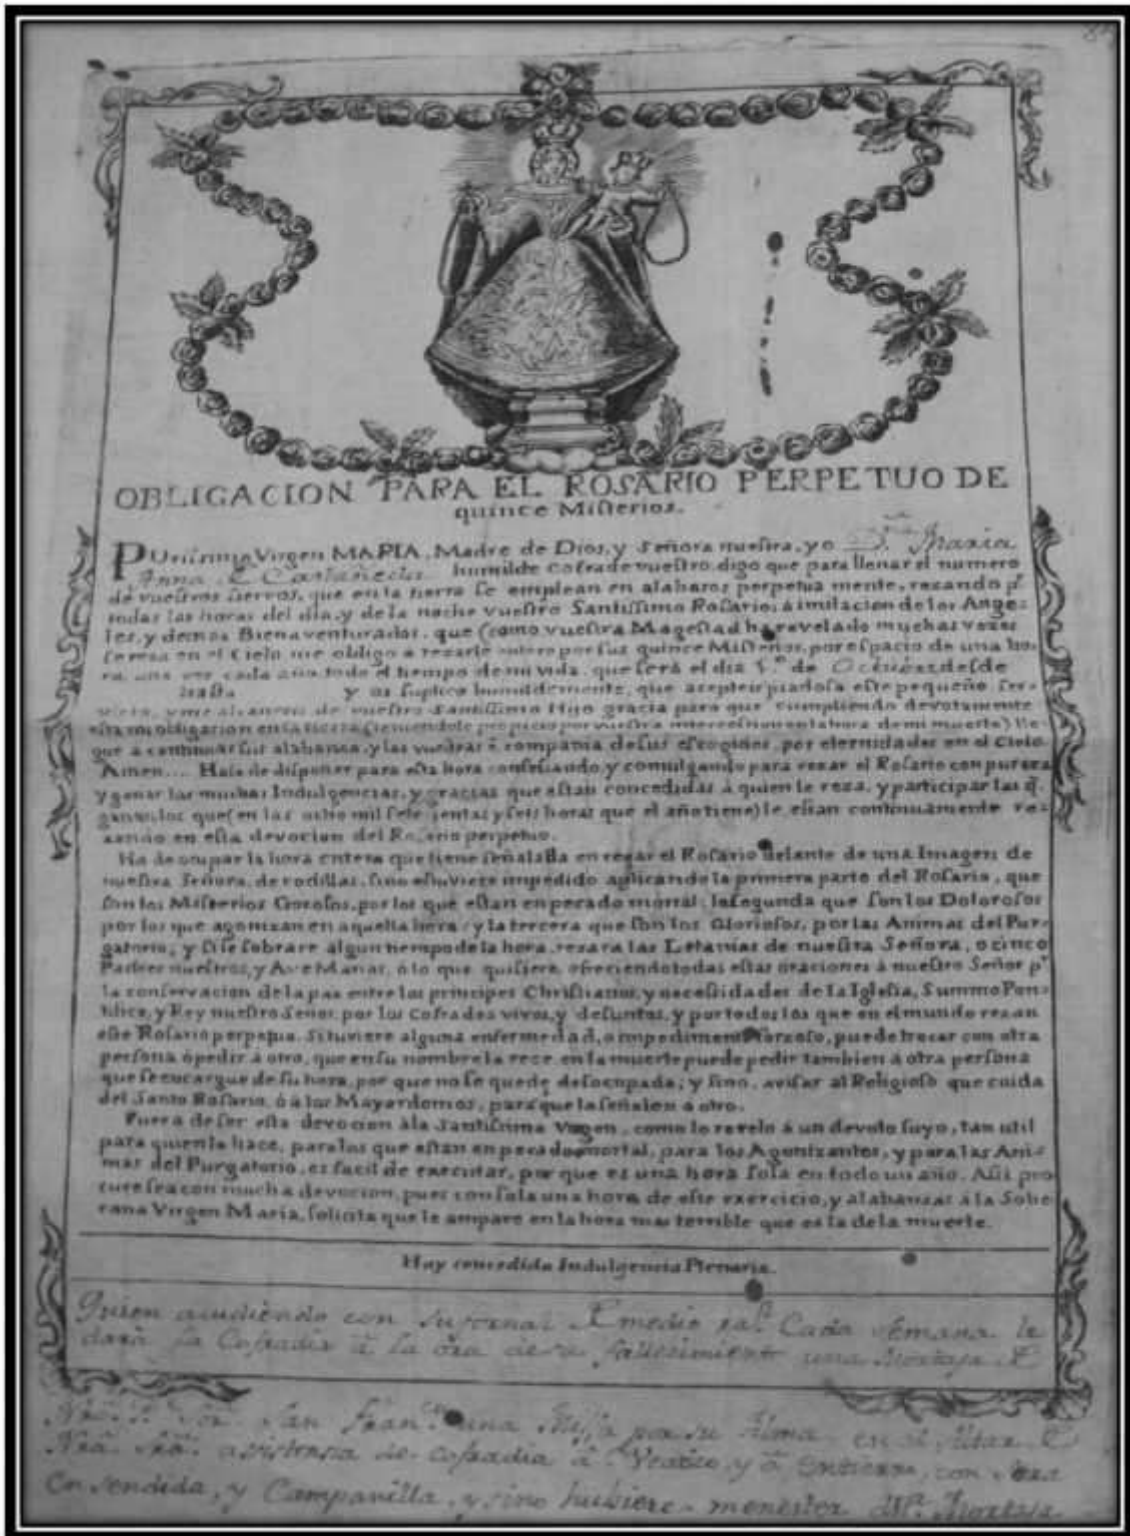 OBLIGACION PARA EL ROSARIO PERPETUO DE
quince Misterios.
PUrisima Virgen MARIA, Madre de Dios, y Señora nuestra, yo D.ª Maria
Anna Castañeda humilde cofrade vuestro, digo que para llenar el numero
de vuestros siervos, que en la tierra se emplean en alabaros perpetua mente, rezando pr.
todas las horas del dia, y de la noche vuestro Santissimo Rosario; á imitacion de los Ange-
les, y demas Bienaventurados, que (como vuestra Magestad ha revelado muchas vezes
se reza en el Cielo me obligo a rezarle entero por sus quince Misterios, por espacio de una ho-
ra, una vez cada año, todo el tiempo de mi vida, que será el dia de Octubre desde
hasta y os suplico humildemente, que acepteis piadosa este pequeño ser-
vicio, y me alcanceis de vuestro Santissimo Hijo gracia para que cumpliendo devotamente
esta mi obligacion en la tierra (teniendole propicio por vuestra intercession en la hora de mi muerte) lle-
gue á continuar sus alabanzas, y las vuestras ē compania de sus escogidos, por eternidades en el Cielo.
Amen.... Hase de disponer para esta hora confesando, y comulgando para rezar el Rosario con pureza
y ganar las muchas Indulgencias, y gracias que estan concedidas á quien le reza, y participar las q̄.
ganan los que (en las ocho mil sete sientas y seis horas que el año tiene) le estan continuamente re-
zando en esta devocion del Rosario perpetuo.
Ha de ocupar la hora entera que tiene señalada en rezar el Rosario delante de una Imagen de
nuestra Señora, de rodillas, sino estuviere impedido aplicando la primera parte del Rosario, que
son los Misterios Gozosos, por los que estan en pecado mortal; la segunda que son los Dolorosos
por los que agonizan en aquella hora; y la tercera que son los Gloriosos, por las Animas del Pur-
gatorio; y si le sobrare algun tiempo de la hora, rezara las Letanias de nuestra Señora, o cinco
Padres nuestros, y Ave Marias, ó lo que quisiere, ofreciendo todas estas oraciones á nuestro Señor pr.
la conservacion de la paz entre los principes Christianos, y necessidades de la Iglesia, Summo Pon-
tifice, y Rey nuestro Señor, por los Cofrades vivos, y defuntos, y por todos los que en el mundo rezan
este Rosario perpetuo. Si tuviere alguna enfermedad, o impedimento forzoso, puede trocar con otra
persona ó pedir á otro, que en su nombre la reze, en la muerte puede pedir tambien á otra persona
que se encargue de su hora, por que no se quede desocupada; y sino, avisar al Religioso que cuida
del Santo Rosario, ó á los Mayordomos, para que la señalen á otro.
Fuera de ser esta devocion á la Santissima Virgen, como lo revelo á un devoto suyo, tan util
para quien la hace, para los que estan en pecado mortal, para los Agonizantes, y para las Ani-
mas del Purgatorio, es facil de executar, por que es una hora sola en todo un año. Assi pro
cure sea con mucha devocion, pues con sola una hora de este exercicio, y alabanzas á la Sobe
rana Virgen Maria, solicita que le ampare en la hora mas terrible que es la de la muerte.
Hay concedida Indulgencia Plenaria.
Quien acudiendo con su jornal medio ral. Cada semana le
dará la Cofradia á la óra de su fallesimiento una Mortaja
San Fran.co una Missa por su Alma en el Altar
Nrâ. Srâ. asistensia de cofradia á Veatico, y á Entierro, con Sera
Ensendida, y Campanilla, y sino hubiere menester Mortaja